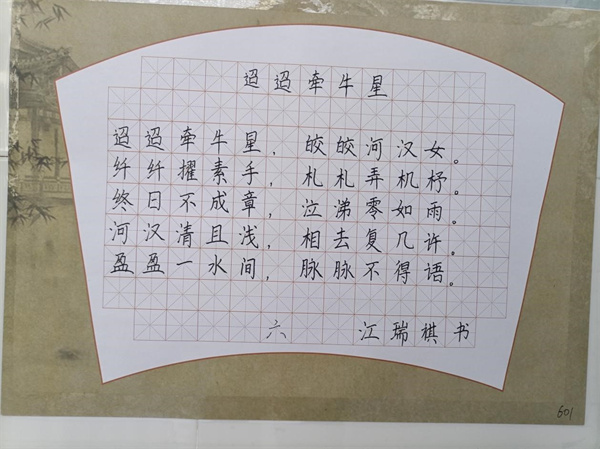 迢迢牵牛星
迢迢牵牛星，皎皎河汉女。
纤纤擢素手，札札弄机杼。
终日不成章，泣涕零如雨。
河汉清且浅，相去复几许。
盈盈一水间，脉脉不得语。
六 江瑞棋书
601